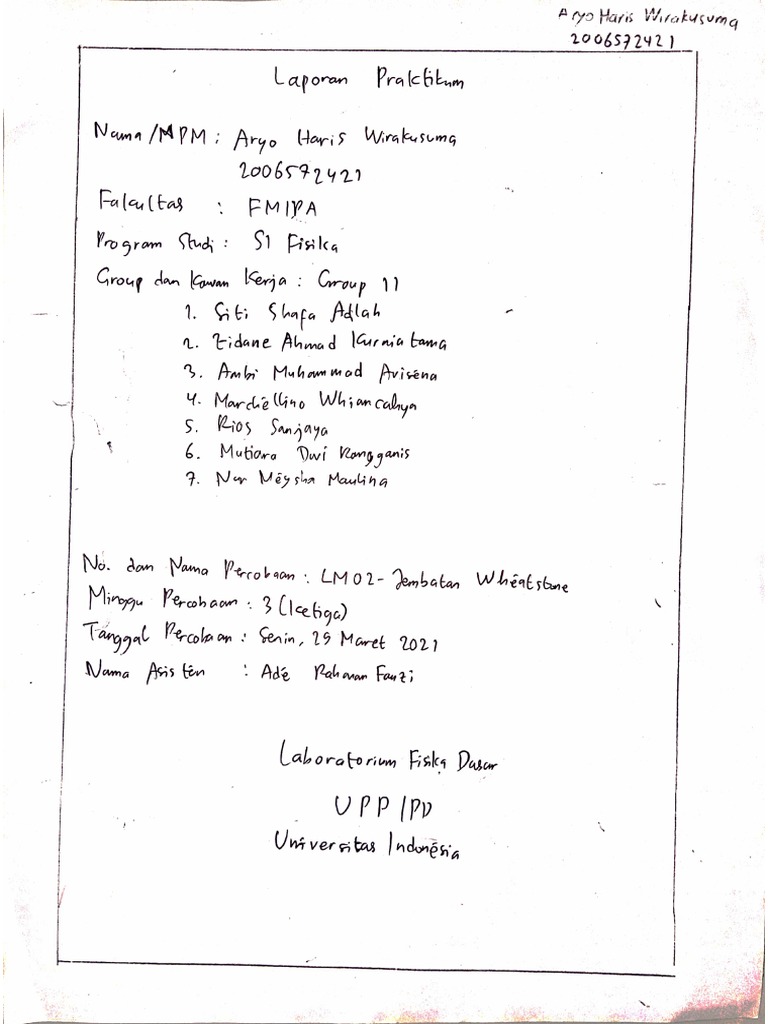 Aryo Haris Wirakusuma
2006572421
Laporan Praktikum
Nama/NPM : Aryo Haris Wirakusuma
2006572421
Fakultas : FMIPA
Program Studi : S1 Fisika
Group dan Kawan Kerja : Group 11
1. Siti Shafa Adlah
2. Zidane Ahmad Kurniatama
3. Ambi Muhammad Avisena
4. Mardiellino Whiancahya
5. Rios Sanjaya
6. Mutiara Dwi Rengganis
7. Nur Meysha Maulina
No. dan Nama Percobaan : LM02 - Jembatan Wheatstone
Minggu Percobaan : 3 (Ketiga)
Tanggal Percobaan : Senin, 29 Maret 2021
Nama Asisten : Ade Rahman Fauzi
Laboratorium Fisika Dasar
UPP IPD
Universitas Indonesia